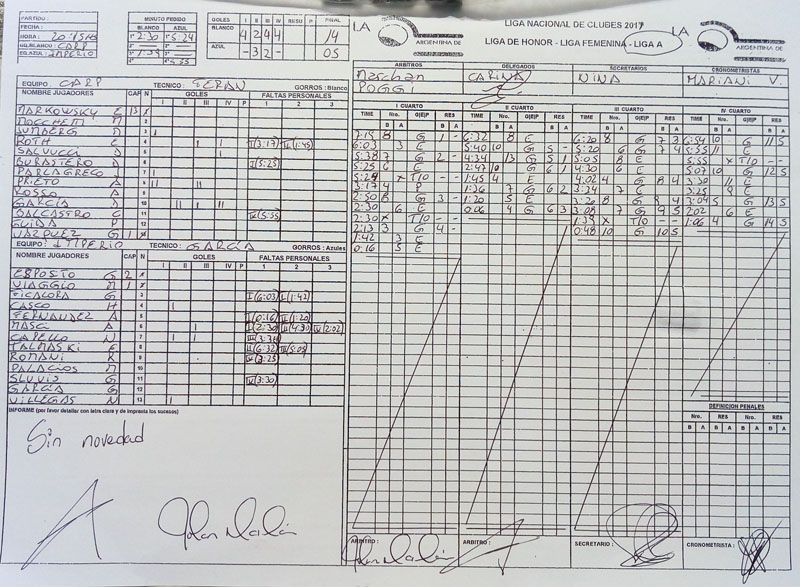 PARTIDO:
FECHA:
HORA: 20:15 HS
GO.BLANCO: CARP
GO.AZUL: IMPERIO
MINUTO PEDIDO
BLANCO AZUL
2:30 5:24
1:39
5:55
GOLES I II III IV RESU P FINAL
BLANCO 4 2 4 4 14
AZUL - 3 2 - 05
LIGA NACIONAL DE CLUBES 2017
LIGA DE HONOR - LIGA FEMENINA - LIGA A
LA
ARGENTINA DE
LA
ARGENTINA DE
ARBITROS DELEGADOS SECRETARIOS CRONOMETRISTAS
CARINA NINA MARIANI V.
POGGI
EQUIPO: CARP TECNICO: Gorros: Blanco
NOMBRE JUGADORES CAP N GOLES FALTAS PERSONALES
I II III IV P 1 2 3
MARKOWSKY E 13
ROTH E 4 II(3:17) IV(1:45)
SALVUCCI D 5
BURASTERO D 6 II(5:25)
PARLAGRECO J 7
PRIETO A 8
ROSSO A 9
GARCIA D 10
DALCASTRO C 11 IV(5:55)
GUIDA P 12
VAZQUEZ G 1
EQUIPO: IMPERIO TECNICO: GARCÍA GORROS: Azules
NOMBRE JUGADORES CAP N GOLES FALTAS PERSONALES
I II III IV P 1 2 3
ESPOSITO G 2
VIAGGIO M 1
FICALORA G 3 I(6:03) I(1:42)
CASCO H 4
FERNANDEZ A 5 I(0:16) II(1:20)
MASCI A 6 I(2:30) II(4:30) IV(2:02)
CAPELLO N 7
TALMASKI E 8 II(6:32) III(5:05)
ROMANI R 9 IV(3:25)
PALACIOS M 10
SLUVIS G 11 IV(3:30)
GARCÍA G 12
VILLEGAS M 13
INFORME (por favor detallar con letra clara y de imprenta los sucesos)
Sin novedad
I CUARTO II CUARTO III CUARTO IV CUARTO
TIME Nro. G|E|P RES TIME Nro. G|E|P RES TIME Nro. G|E|P RES TIME Nro. G|E|P RES
B A B A B A B A B A B A B A B A
7:15 8 G 1 - 6:32 8 E 6:20 8 G 7 3 6:54 10 G 11 5
6:03 3 E 5:40 10 G 5 - 5:20 6 G 7 4 5:55 11 E
5:38 7 G 2 - 4:34 13 G 5 1 5:05 8 E 5:55 x T/O - -
5:25 6 E 2:47 10 G 6 1 4:30 6 E 5:07 10 G 12 5
5:24 x T/O - - 1:45 4 E 4:02 4 G 8 4 3:30 11 E
3:17 4 P 1:36 7 G 6 2 3:34 7 E 3:25 9 E
2:50 8 G 3 - 1:20 5 E 3:20 8 G 9 4 3:04 5 G 13 5
2:30 6 E 0:06 4 G 6 3 3:08 7 G 9 5 2:02 6 E
2:30 x T/O - - 1:39 x T/O - - 1:06 4 G 14 5
2:13 3 G 4 - 0:48 10 G 10 5
1:42 3 E
0:16 5 E
DEFINICION PENALES
Nro. RES Nro. RES
B A B A B A B A
ARBITRO: ARBITRO: SECRETARIO: CRONOMETRISTA: